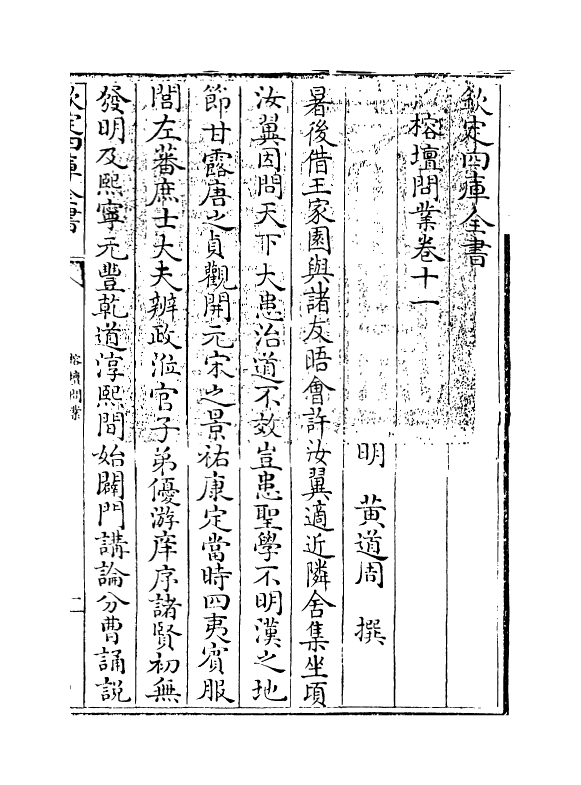 欽定四庫全書
榕壇問業卷十一
明　黄道周　撰
暑後借王家園與諸友晤會許汝翼適近隣舍集坐頃
汝翼因問天下大患治道不效豈患聖學不明漢之地
節甘露唐之貞觀開元宋之景祐康定當時四夷賓服
閭左蕃庶士大夫辨政涖官子弟優游庠序諸賢初無
發明及熙寧元豐乾道淳熙間始闢門講論分曹誦説
欽定四庫全書
榕壇問業